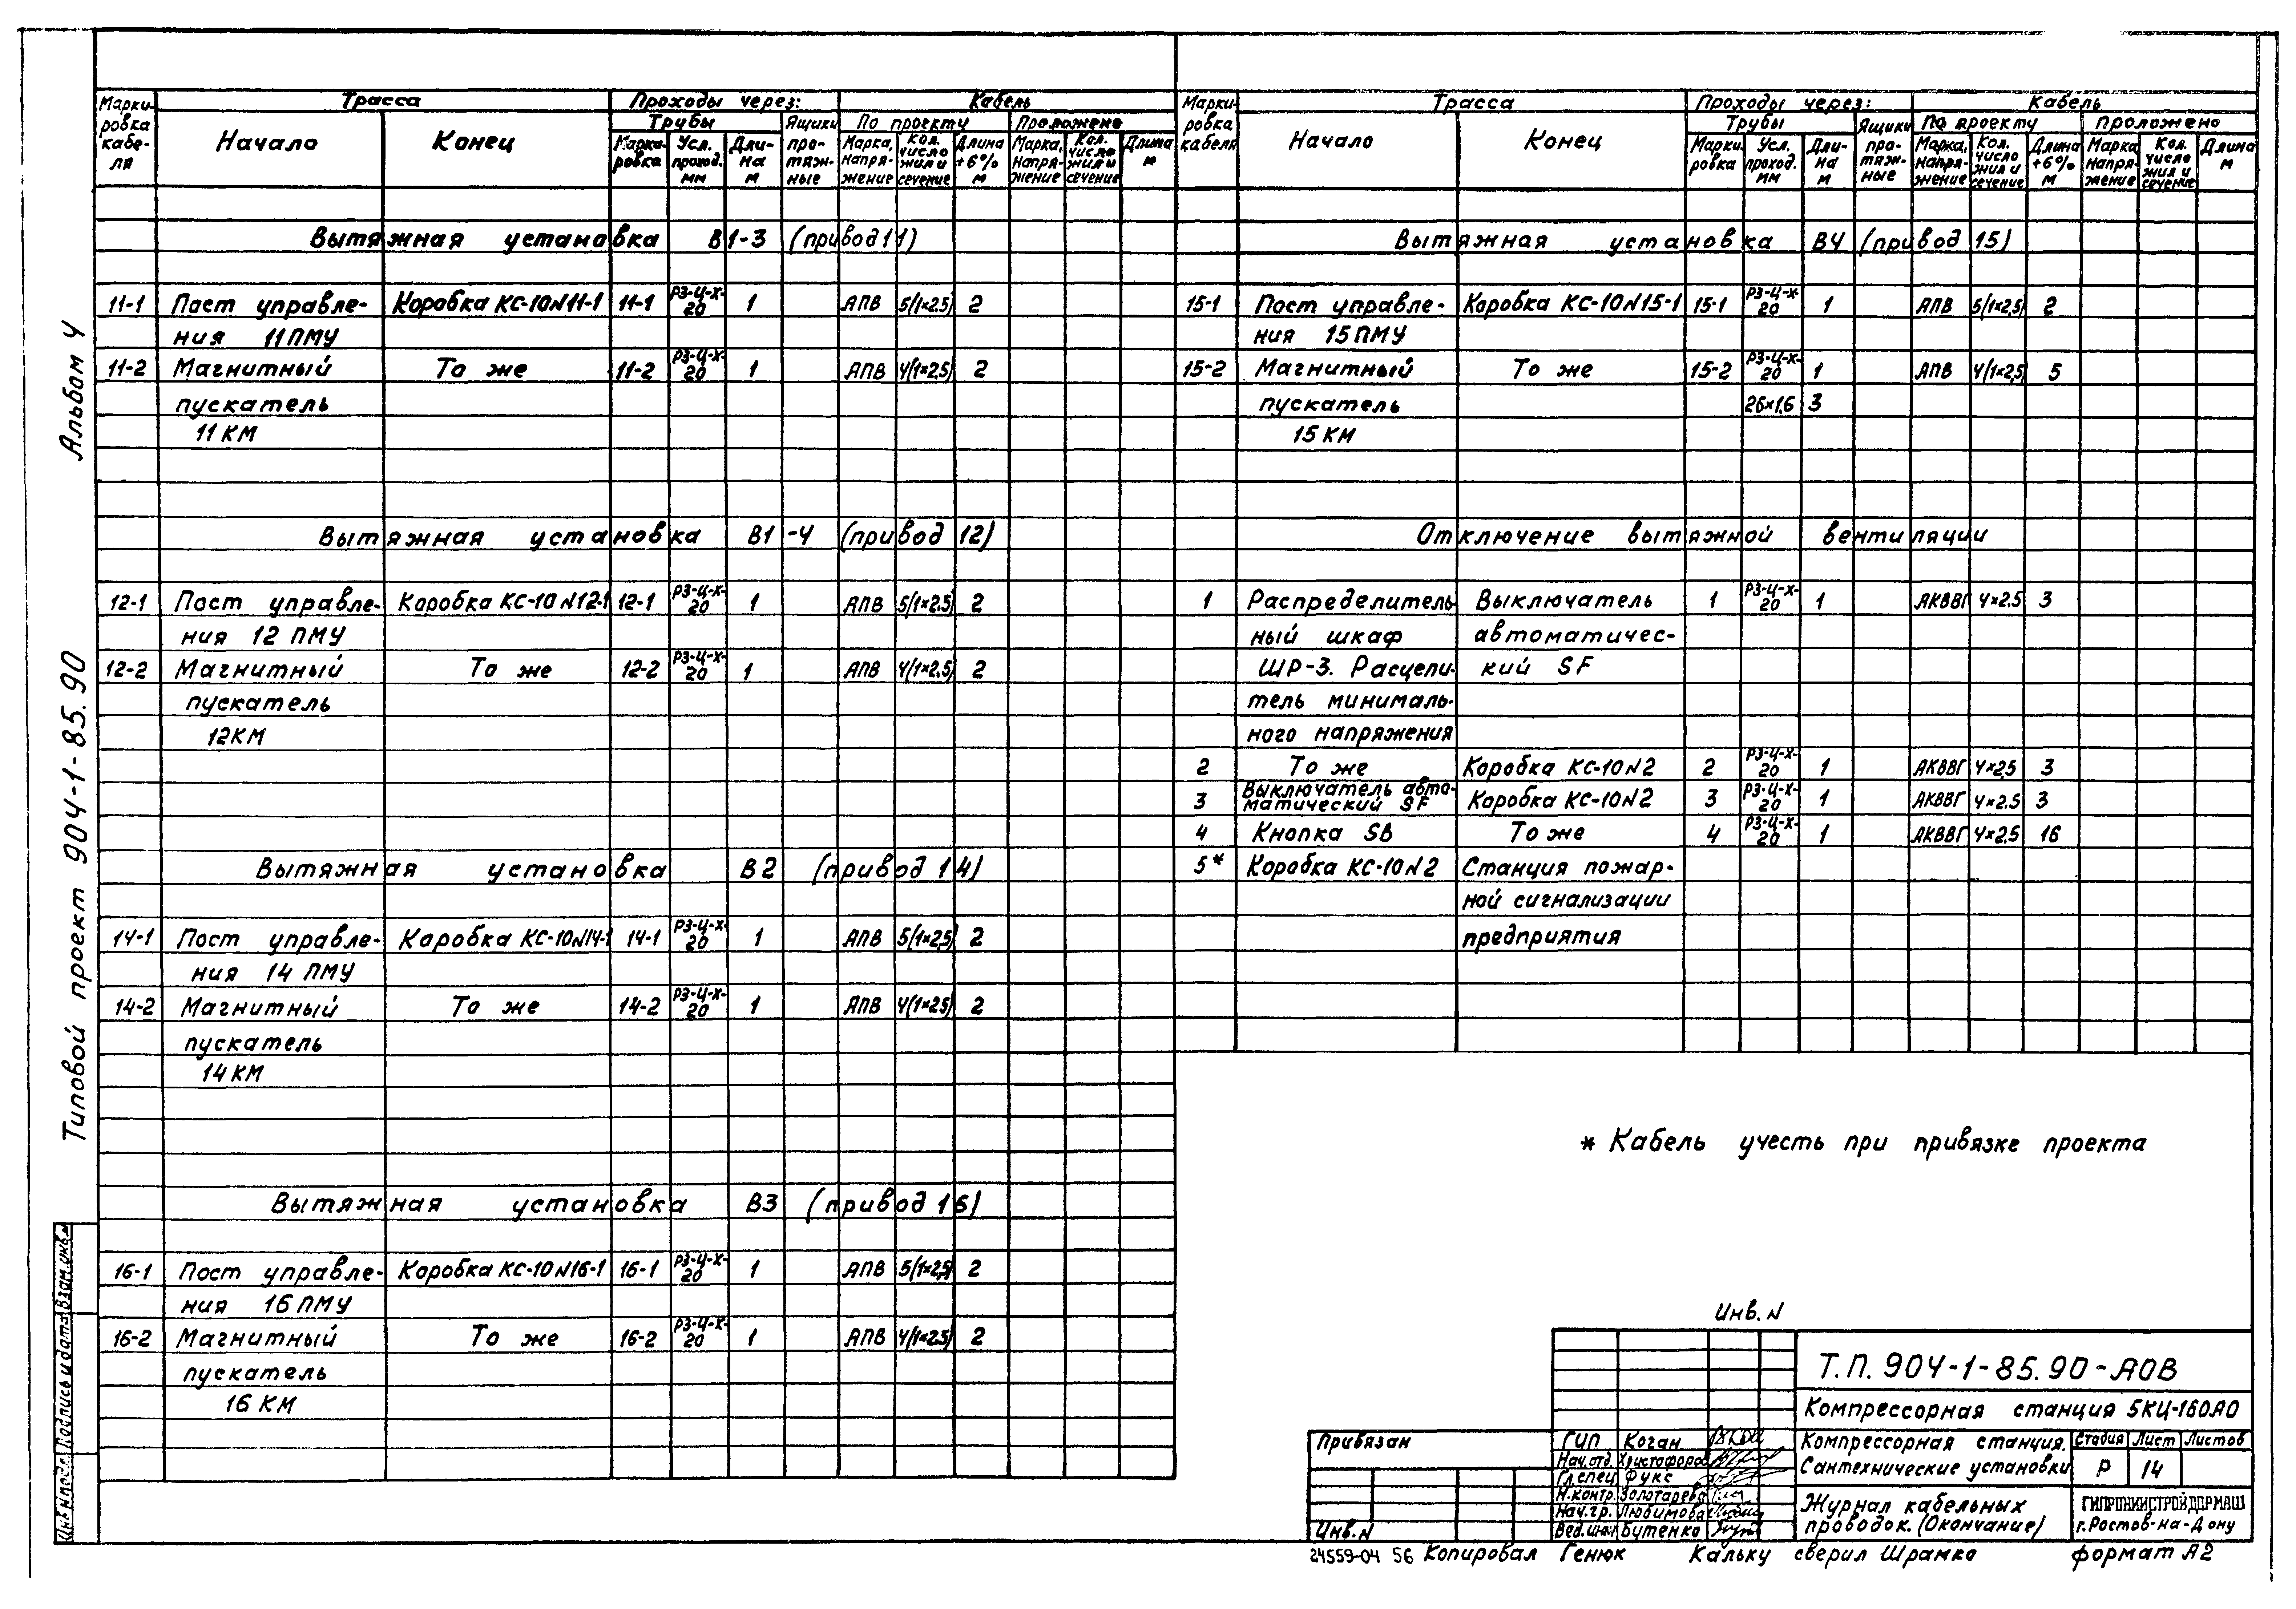 Альбом 4
Типовой проект 904-1-85.90
Инв.N подл. Подпись и дата Взам.инв.N
Марки-ровка кабе-ля | Трасса | Проходы через: | Кабель
Начало | Конец | Трубы | Ящики про-тяж-ные | По проекту | Проложено
Марки-ровка | Усл. проход. мм | Дли-на м | Марка, напря-жение | Кол. число жил и сечение | Длина +6% м | Марка, напря-жение | Кол. число жил и сечение | Длина м
Вытяжная установка В1-3 (привод 11)
11-1 Пост управле- Коробка КС-10N11-1 11-1 РЗ-Ц-Х-20 1 АПВ 5(1×2,5) 2
ния 11ПМУ
11-2 Магнитный То же 11-2 РЗ-Ц-Х-20 1 АПВ 4(1×2,5) 2
пускатель
11КМ
Вытяжная установка В1-4 (привод 12)
12-1 Пост управле- Коробка КС-10N12-1 12-1 РЗ-Ц-Х-20 1 АПВ 5(1×2,5) 2
ния 12 ПМУ
12-2 Магнитный То же 12-2 РЗ-Ц-Х-20 1 АПВ 4(1×2,5) 2
пускатель
12КМ
Вытяжная установка В2 (привод 14)
14-1 Пост управле- Коробка КС-10N14-1 14-1 РЗ-Ц-Х-20 1 АПВ 5(1×2,5) 2
ния 14 ПМУ
14-2 Магнитный То же 14-2 РЗ-Ц-Х-20 1 АПВ 4(1×2,5) 2
пускатель
14КМ
Вытяжная установка В3 (привод 16)
16-1 Пост управле- Коробка КС-10N16-1 16-1 РЗ-Ц-Х-20 1 АПВ 5(1×2,5) 2
ния 16ПМУ
16-2 Магнитный То же 16-2 РЗ-Ц-Х-20 1 АПВ 4(1×2,5) 2
пускатель
16КМ
Марки-ровка кабеля | Трасса | Проходы через: | Кабель
Начало | Конец | Трубы | Ящики про-тяж-ные | По проекту | Проложено
Марки-ровка | Усл. проход. мм | Дли-на м | Марка, напря-жение | Кол. число жил и сечение | Длина +6% м | Марка напря-жение | Кол. число жил и сечение | Длина м
Вытяжная установка В4 (привод 15)
15-1 Пост управле- Коробка КС-10N15-1 15-1 РЗ-Ц-Х-20 1 АПВ 5(1×2,5) 2
ния 15ПМУ
15-2 Магнитный То же 15-2 РЗ-Ц-Х-20 1 АПВ 4(1×2,5) 5
пускатель 26×1,6 3
15КМ
Отключение вытяжной вентиляции
1 Распределитель- Выключатель 1 РЗ-Ц-Х-20 1 АКВВГ 4×2.5 3
ный шкаф автоматичес-
ШР-3. Расцепи- кий SF
тель минималь-
ного напряжения
2 То же Коробка КС-10N2 2 РЗ-Ц-Х-20 1 АКВВГ 4×2,5 3
3 Выключатель авто-матический SF Коробка КС-10N2 3 РЗ-Ц-Х-20 1 АКВВГ 4×2.5 3
4 Кнопка SB То же 4 РЗ-Ц-Х-20 1 АКВВГ 4×2,5 16
5* Коробка КС-10N2 Станция пожар-
ной сигнализации
предприятия
* Кабель учесть при привязке проекта
Инв.N
Т.П. 904-1-85.90-АОВ
Компрессорная станция 5КЦ-160АО
Привязан
Инв.N
ГИП Коган
Нач.отд. Христофоров
Гл.спец Фукс
Н.контр. Золотарева
Нач.гр. Любимова
Вед.инж Бутенко
Компрессорная станция.
Сантехнические установки
Стадия Лист Листов
Р 14
Журнал кабельных
проводок. (Окончание)
ГИПРОНИИСТРОЙДОРМАШ
г.Ростов-на-Дону
24559-04 56 Копировал Генюк Кальку сверил Шрамко формат А2